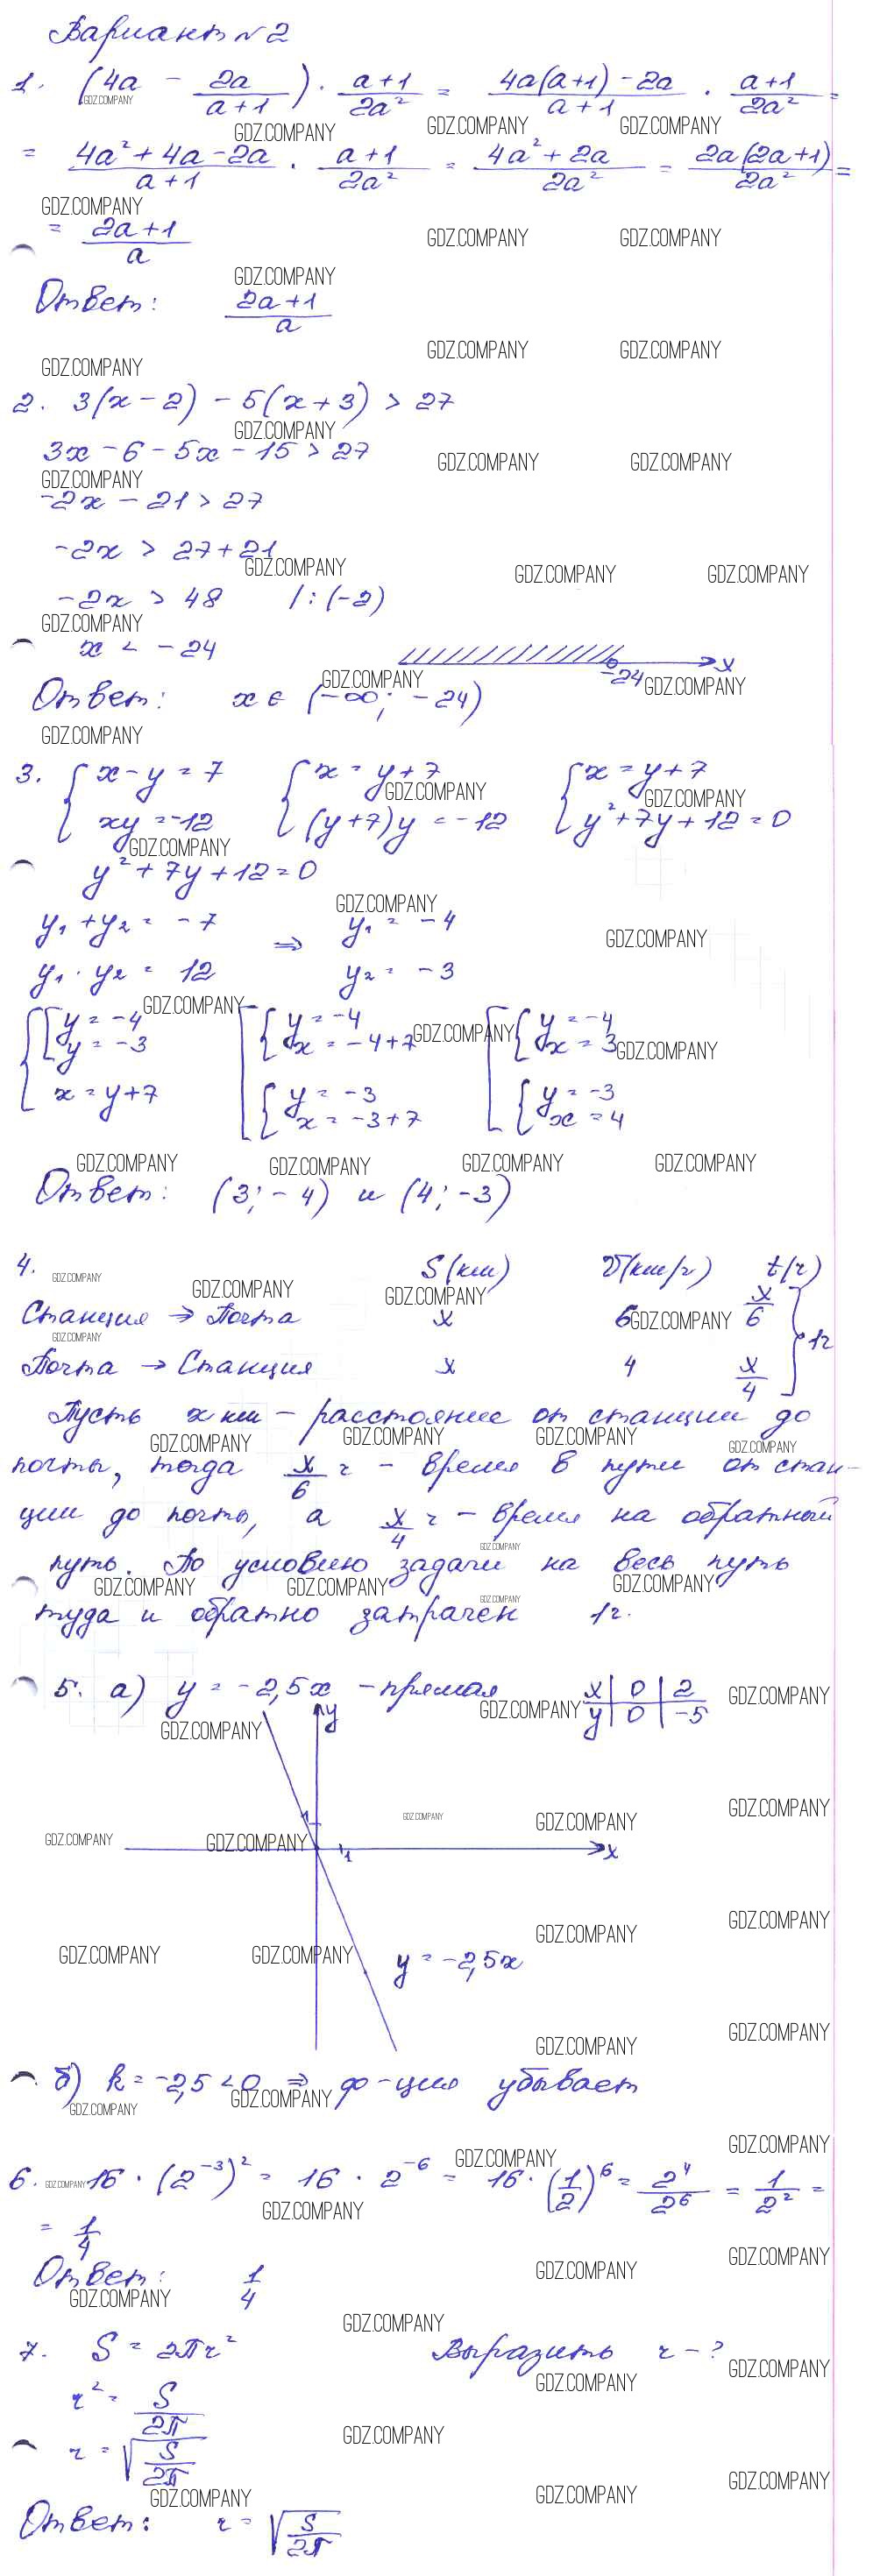 Вариант №2
1. (4a - 2a/(a+1)) · (a+1)/(2a²) = (4a(a+1) - 2a)/(a+1) · (a+1)/(2a²) =
= (4a² + 4a - 2a)/(a+1) · (a+1)/(2a²) = (4a² + 2a)/(2a²) = 2a(2a+1)/(2a²) =
= (2a+1)/a
Ответ: (2a+1)/a
2. 3(x - 2) - 5(x + 3) > 27
3x - 6 - 5x - 15 > 27
-2x - 21 > 27
-2x > 27 + 21
-2x > 48 | : (-2)
x < -24
-24 x
Ответ: x ∈ (-∞; -24)
3. { x - y = 7 { x = y + 7 { x = y + 7
xy = -12 (y + 7)y = -12 y² + 7y + 12 = 0
y² + 7y + 12 = 0
y₁ + y₂ = -7 ⇒ y₁ = -4
y₁ · y₂ = 12 y₂ = -3
{ [ y = -4 [ { y = -4 [ { y = -4
y = -3 x = -4 + 7 x = 3
x = y + 7 { y = -3 { y = -3
x = -3 + 7 x = 4
Ответ: (3; -4) и (4; -3)
4. S (км) V (км/ч) t (ч)
Станция → Почта x 6 x/6
} 1ч
Почта → Станция x 4 x/4
Пусть x км - расстояние от станции до
почты, тогда x/6 ч - время в пути от стан-
ции до почты, а x/4 ч - время на обратный
путь. По условию задачи на весь путь
туда и обратно затрачен 1ч.
5. а) y = -2,5x - прямая x | 0 | 2
y | 0 | -5
y
1
1 x
y = -2,5x
б) k = -2,5 < 0 ⇒ ф-ция убывает
6. 16 · (2⁻³)² = 16 · 2⁻⁶ = 16 · (1/2)⁶ = 2⁴/2⁶ = 1/2² =
= 1/4
Ответ: 1/4
7. S = 2πr² Выразить r - ?
r² = S/(2π)
r = √(S/(2π))
Ответ: r = √(S/(2π))
GDZ.COMPANY